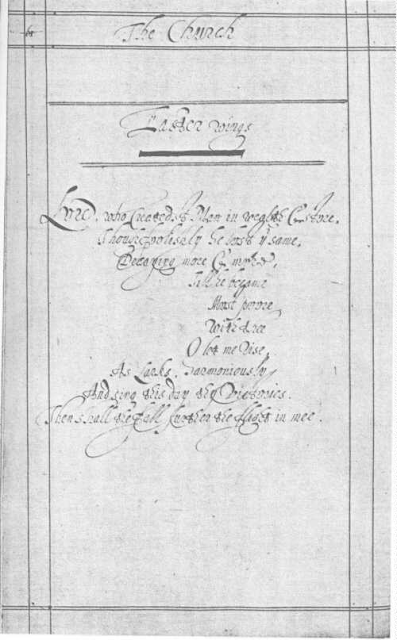 The Church
Easter wings
Lord, who Createdst Man in wealth & store,
Though foolishly he lost yᵉ same,
Decaying more & more,
Till he became
Most poore,
With thee
O let me rise,
As Larks, harmoniously,
And sing this day thy Victories.
Then shall the fall further the flight in mee.